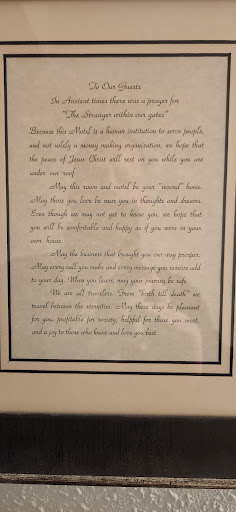 To Our Guests
In Ancient times there was a prayer for
"The Stranger within our gates"
Because this Motel is a human institution to serve people,
and not solely a money making organization, we hope that
the peace of Jesus Christ will rest on you while you are
under our roof.
May this room and motel be your "second" home.
May those you love be near you in thoughts and dreams.
Even though we may not get to know you, we hope that
you will be comfortable and happy as if you were in your
own house.
May the business that brought you our way prosper.
May every call you make and every message you receive add
to your day. When you leave, may your journey be safe.
We are all travelers. From "birth till death" we
travel between the eternities. May these days be pleasant
for you, profitable for society, helpful for those you meet,
and a joy to those who know and love you best.